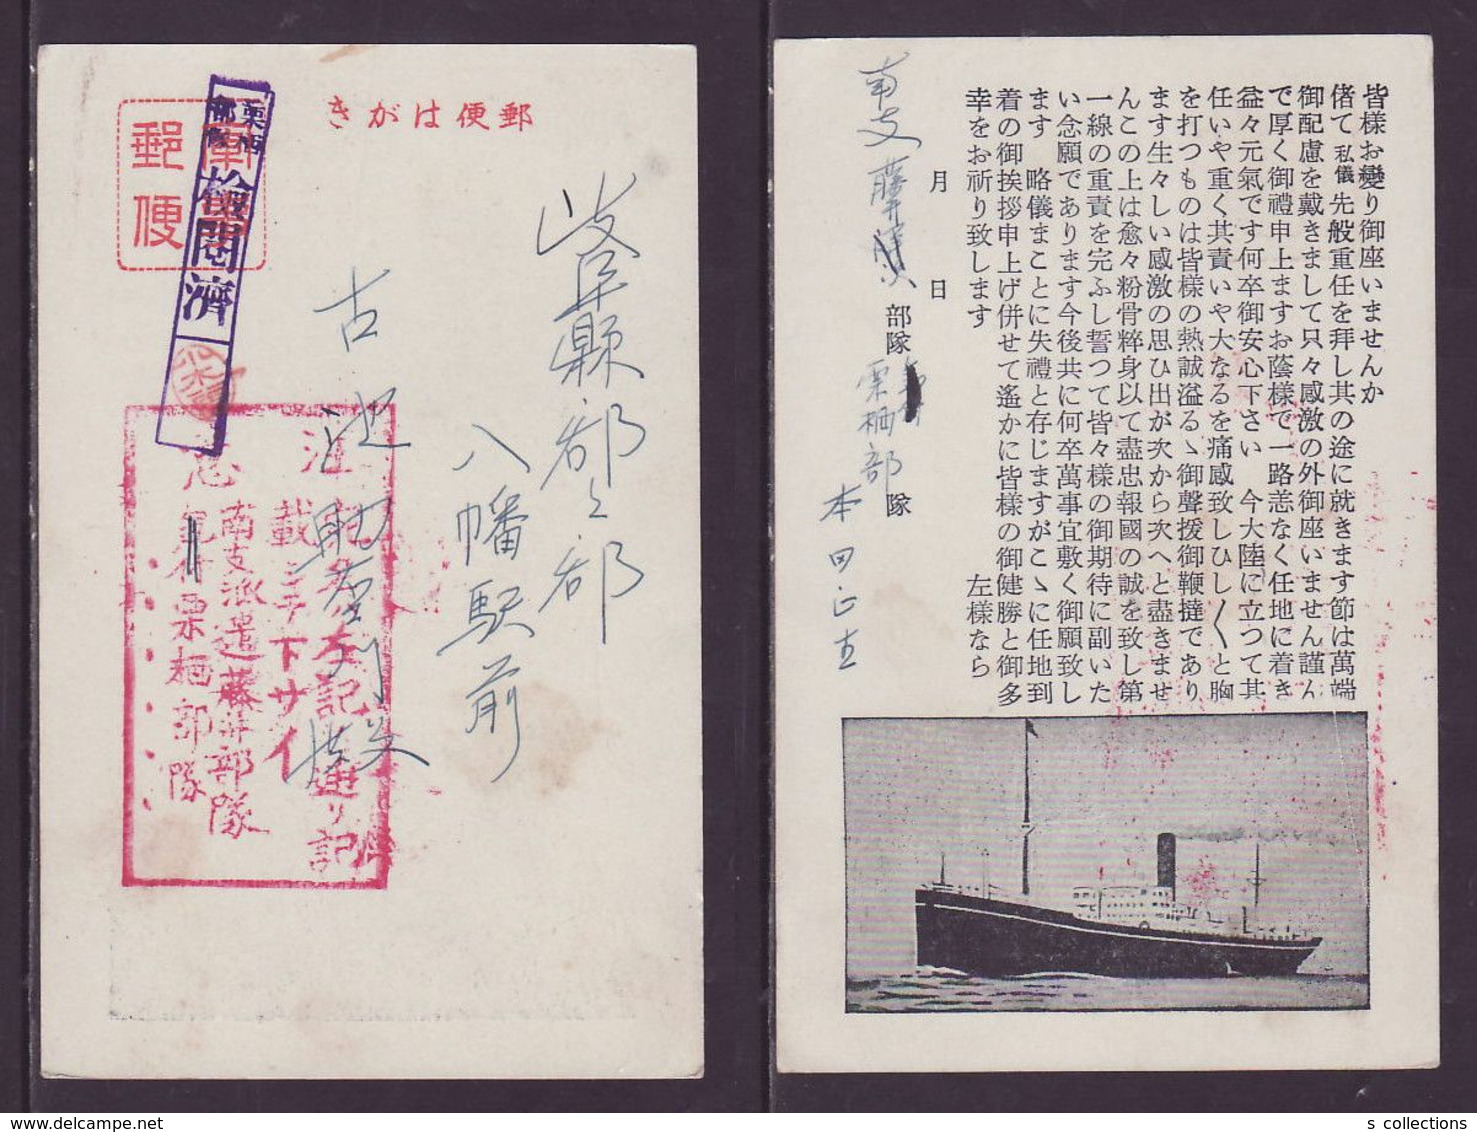 郵便はがき
軍事
郵便
栗栖
部隊
検閲濟
岐阜縣郡上郡
八幡駅前
古池助左衛門様
注意
宛名左記通リ記
載シテ下サイ
南支派遣藤井部隊
気付栗栖部隊
皆樣お變り御座いませんか
偖て私儀先般重任を拜し其の途に就きます節は萬端
御配慮を戴きまして只々感激の外御座いません謹ん
で厚く御禮申上ますお蔭樣で一路恙なく任地に着き
益々元氣です何卒御安心下さい　今大陸に立つて其
任いや重く其責いや大なるを痛感致しひし〳〵と胸
を打つものは皆樣の熱誠溢るゝ御聲援御鞭撻であり
ます生々しい感激の思ひ出が次から次へと盡きませ
んこの上は愈々粉骨粹身以て盡忠報國の誠を致し第
一線の重責を完ふし誓つて皆々樣の御期待に副いた
い念願であります今後共に何卒萬事宜敷く御願致し
ます　略儀まことに失禮と存じますがこゝに任地到
着の御挨拶申上げ併せて遙かに皆樣の御健勝と御多
幸をお祈り致します　左樣なら
月　日
南支藤井 部隊
栗栖部隊
本田正直
s collections